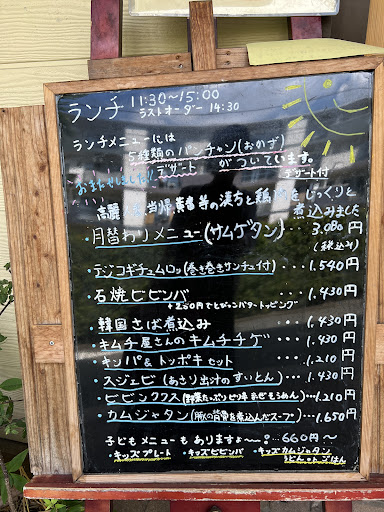 ランチ 11:30〜15:00
ラストオーダー 14:30
ランチメニューには
5種類のバンチャン(おかず)
デザート がついています。
デザート付
おまたせしました!!
高麗 当帰 黄耆 等の漢方と鶏肉をじっくりと
煮込みました
・月替わりメニュー(サムゲタン)・・・3,080円
(税込み)
・テジコギチュムロッ(巻き巻きサンチュ付)・・・1,540円
・石焼ビビンバ ・・・1,430円
トッピング
・韓国さば煮込み ・・・1,430円
・キムチ屋さんのキムチチゲ・・・1,430円
・キンパ&トッポキセット ・・・1,210円
・スジェビ(あさり出汁のすいとん)・・・1,430円
・ビビンククス(野菜たっぷりピリ辛まぜそうめん)・・・1,210円
・カムジャタン(豚の背骨を煮込んだスープ)・・・1,650円
子どもメニューもあります 660円〜
・キッズプレート ・キッズビビンバ ・キッズカムジャタン